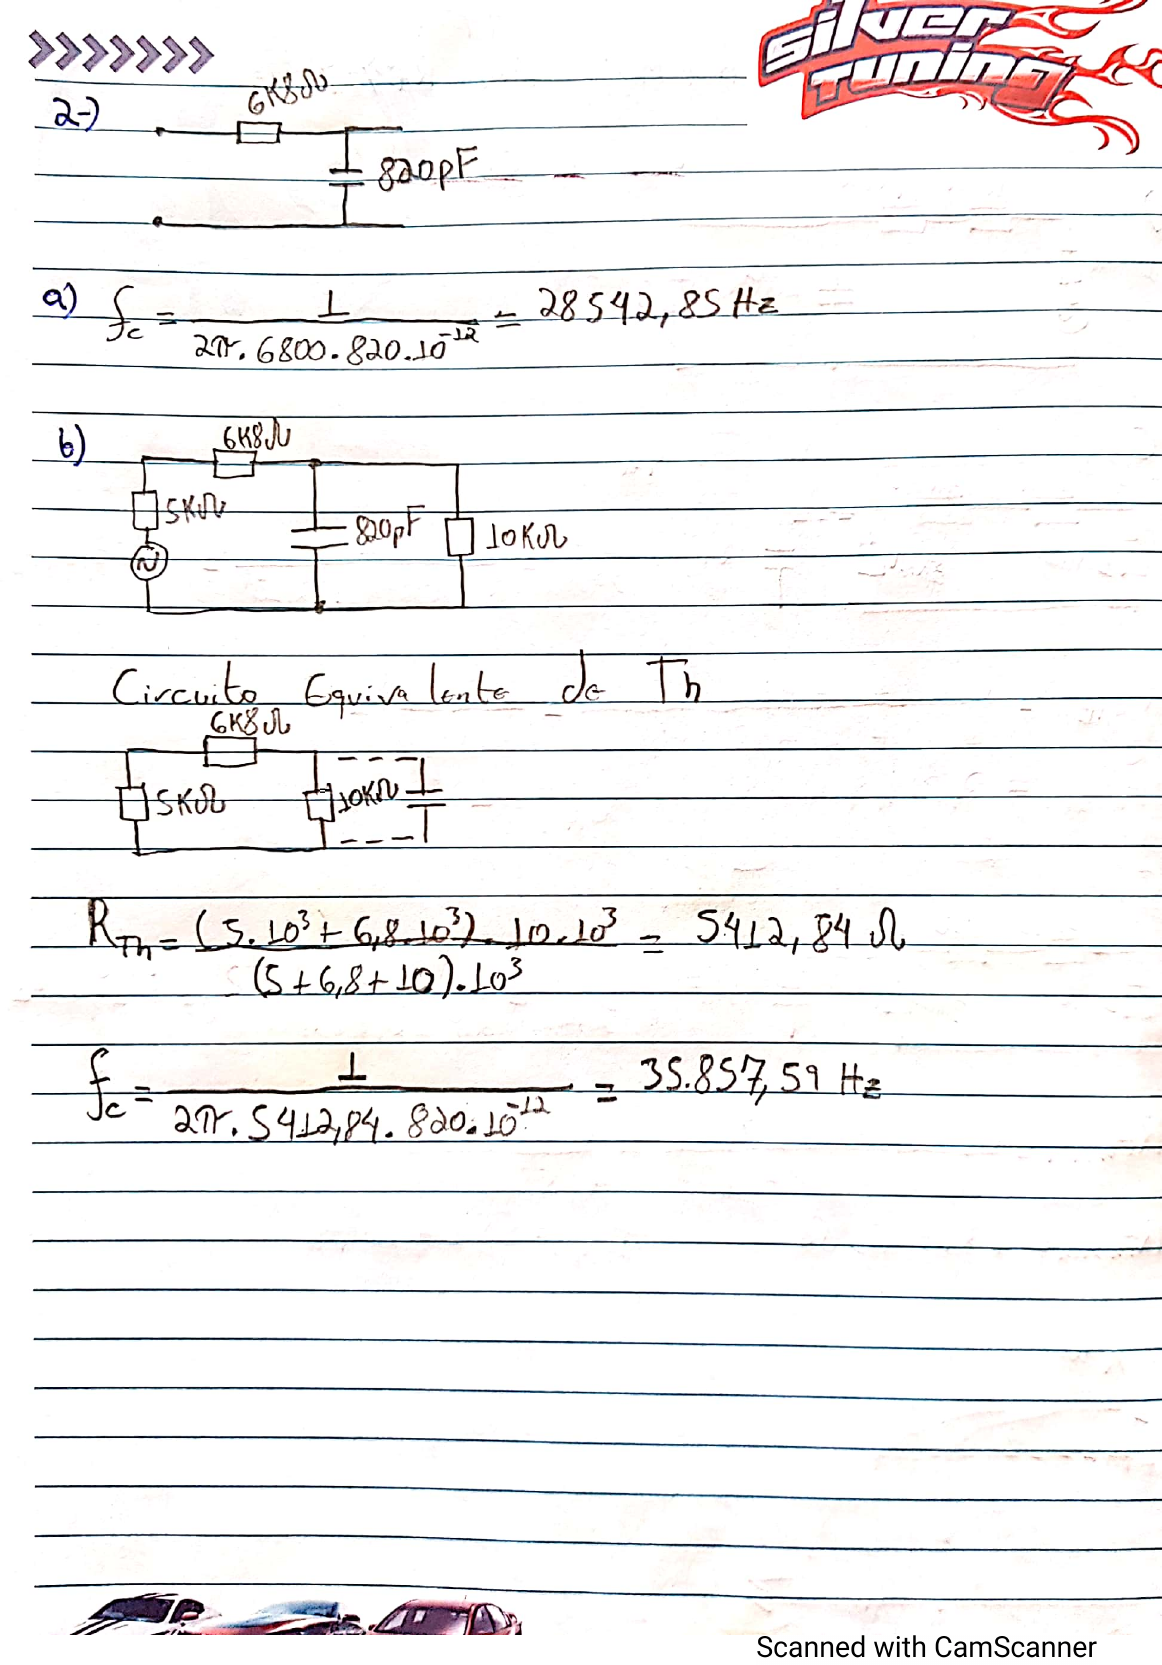 silver
tuning
2-)
6K8Ω
820pF
a) fc = 1 / 2π. 6800. 820. 10^-12 = 28542,85 Hz
b)
6K8Ω
5KΩ
820pF
10KΩ
Circuito Equivalente de Th
6K8Ω
5KΩ
10KΩ
RTh = (5.10³ + 6,8.10³). 10.10³ / (5+6,8+10).10³ = 5412,84 Ω
fc = 1 / 2π. 5412,84. 820. 10^-12 = 35.857,59 Hz
Scanned with CamScanner